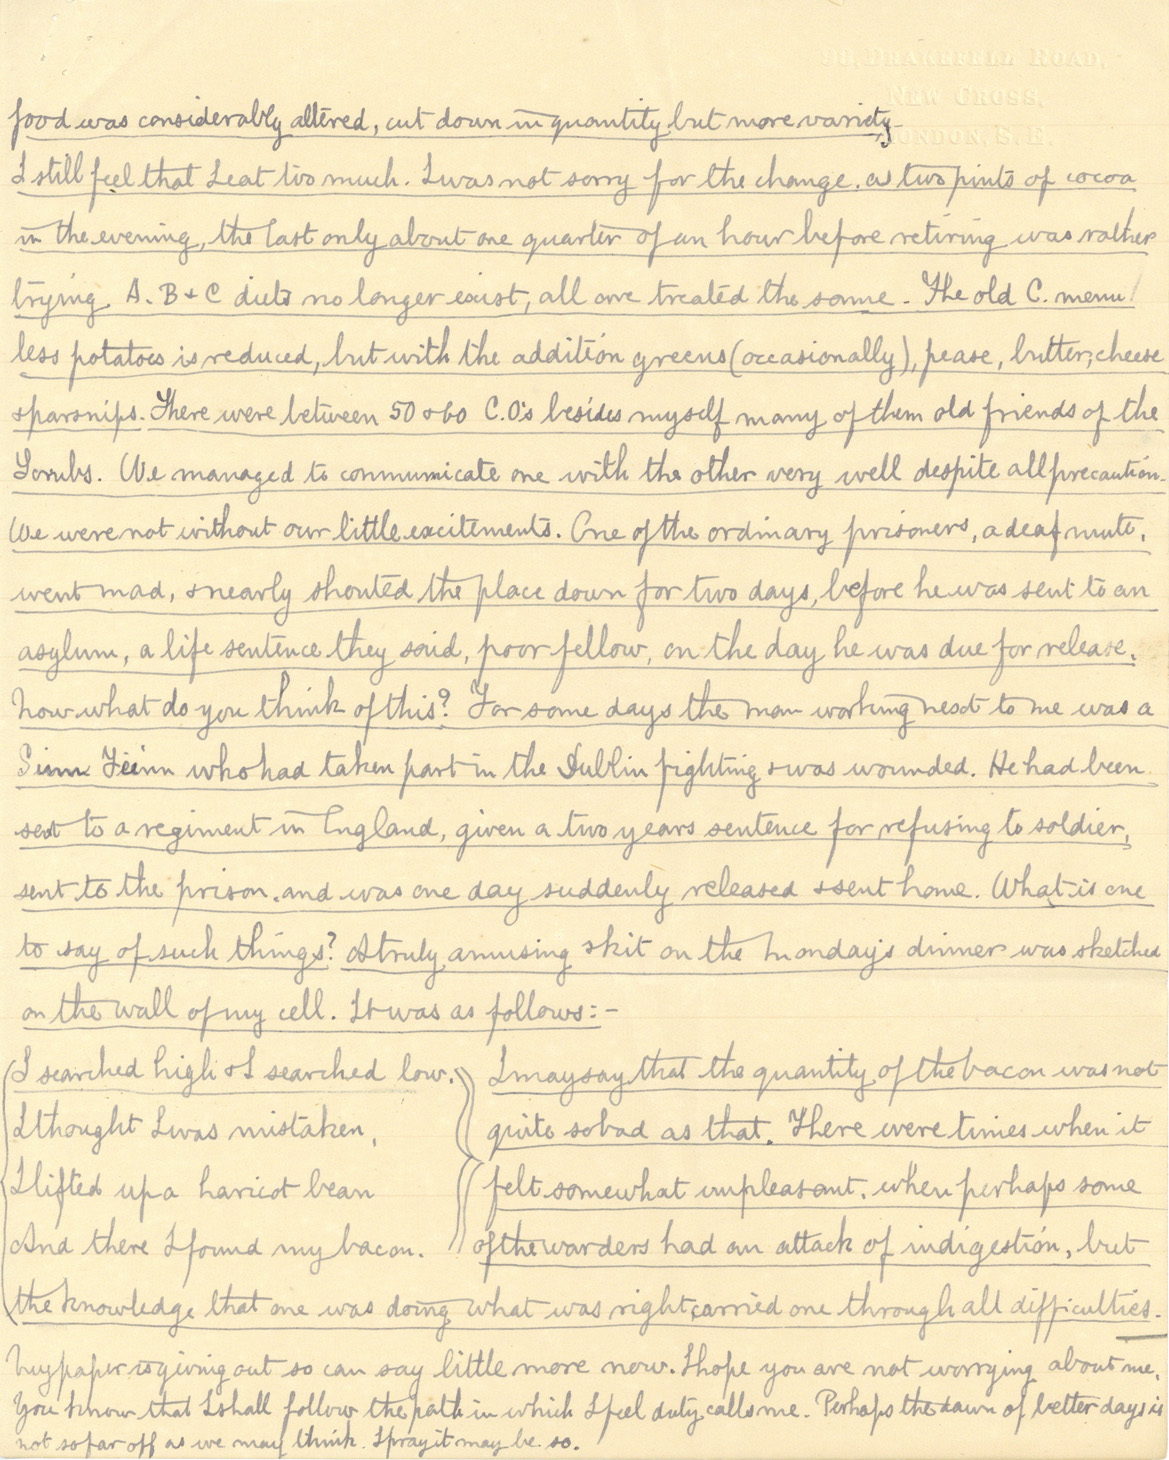 38, DRAKEFELL ROAD,
NEW CROSS,
LONDON, S.E.
food was considerably altered, cut down in quantity but more variety
I still feel that I eat too much. I was not sorry for the change, as two pints of cocoa
in the evening, the last only about one quarter of an hour before retiring was rather
trying. A. B & C diets no longer exist, all are treated the same. The old C. menu
less potatoes is reduced, but with the addition greens (occasionally), pease, butter, cheese
& parsnips. There were between 50 & 60 C.O's besides myself many of them old friends of the
Scrubs. We managed to communicate one with the other very well despite all precaution.
We were not without our little excitements. One of the ordinary prisoners, a deaf mute,
went mad, & nearly shouted the place down for two days, before he was sent to an
asylum, a life sentence they said, poor fellow, on the day he was due for release.
Now what do you think of this? For some days the man working next to me was a
Sinn Féinn who had taken part in the Dublin fighting & was wounded. He had been
sent to a regiment in England, given a two years sentence for refusing to soldier,
sent to the prison, and was one day suddenly released & sent home. What is one
to say of such things? A truly amusing skit on the Monday's dinner was sketched
on the wall of my cell. It was as follows:-
I searched high & I searched low.
I thought I was mistaken,
I lifted up a haricot bean
And there I found my bacon.
I may say that the quantity of the bacon was not
quite so bad as that. There were times when it
felt somewhat unpleasant, when perhaps some
of the warders had an attack of indigestion, but
the knowledge that one was doing what was right carried one through all difficulties.
My paper is giving out so can say little more now. I hope you are not worrying about me.
You know that I shall follow the path in which I feel duty calls me. Perhaps the dawn of better days is
not so far off as we may think. I pray it may be so.